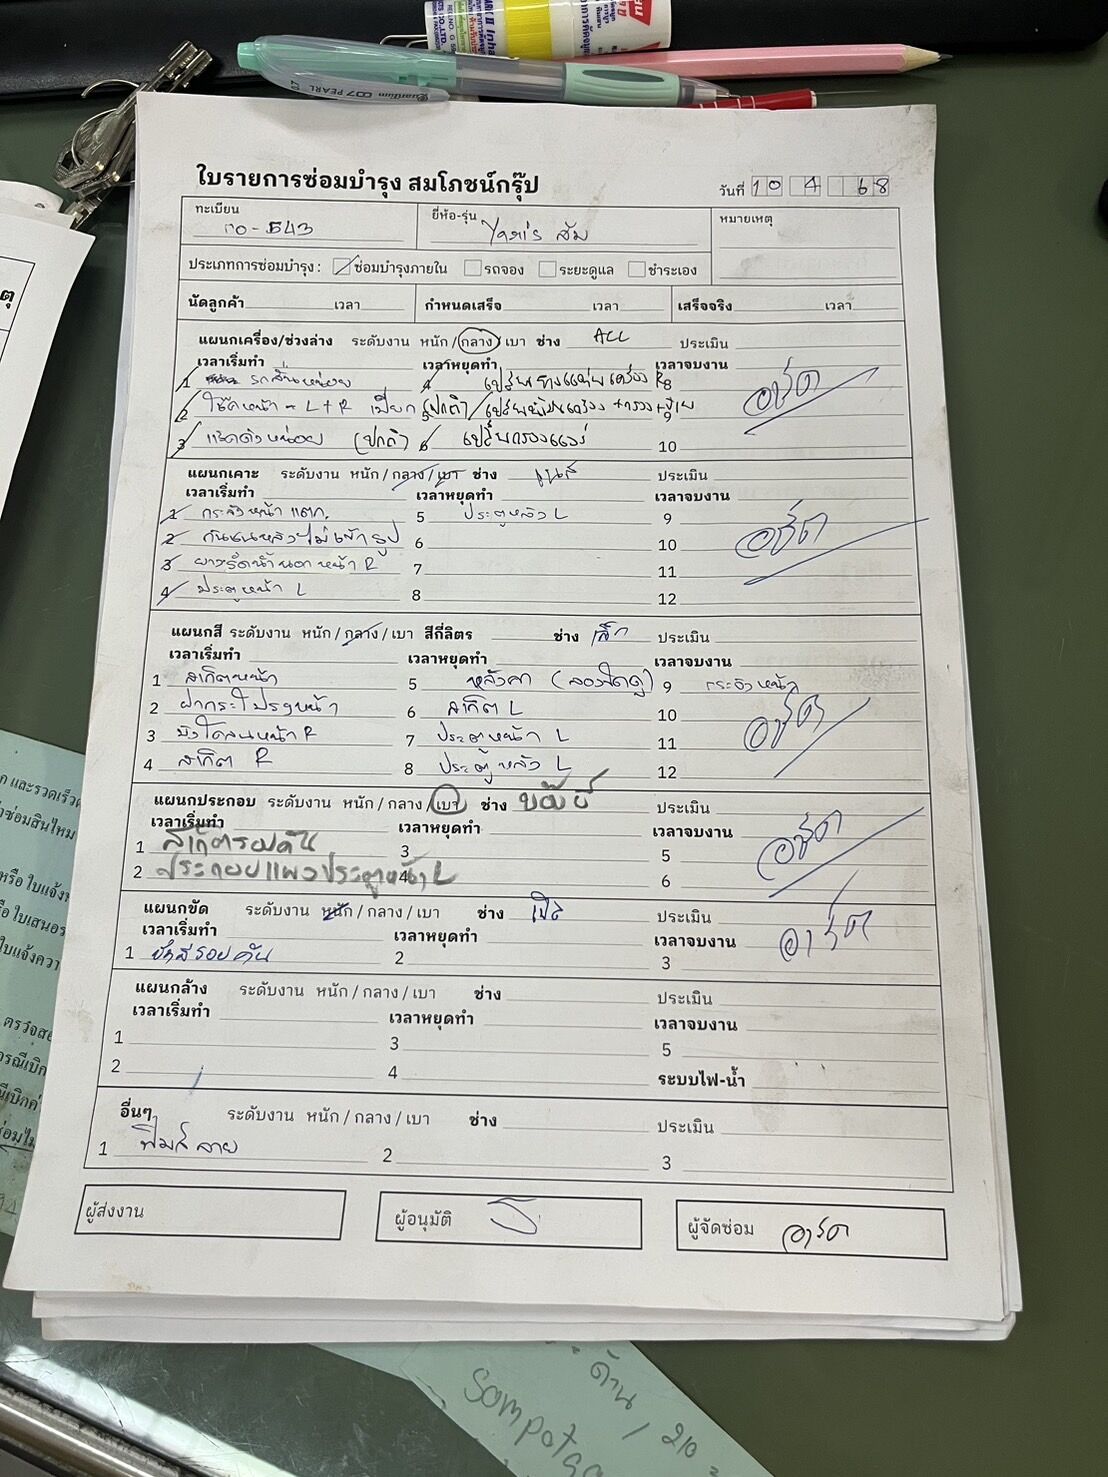 ใบรายการซ่อมบำรุง สมโภชน์กรุ๊ป
วันที่ 10 4 68
ทะเบียน ยี่ห้อ-รุ่น หมายเหตุ
Yaris ส้ม
ประเภทการซ่อมบำรุง : ซ่อมบำรุงภายใน รถจอง ระยะดูแล ชำระเอง
นัดลูกค้า เวลา กำหนดเสร็จ เวลา เสร็จจริง เวลา
แผนกเครื่อง/ช่วงล่าง ระดับงาน หนัก / กลาง / เบา ช่าง ALL ประเมิน
เวลาเริ่มทำ เวลาหยุดทำ เวลาจบงาน
1 รถสั่นหน่อย 4 เปลี่ยนยางแท่นเครื่อง R 8
2 โช๊คหน้า - L + R เปียก (ปกติ) 5 เปลี่ยนน้ำมันเครื่อง + กรอง 9
3 แตรดังหน่อย (ปกติ) 6 เปลี่ยนกรองแอร์ 10
อาร์ต
แผนกเคาะ ระดับงาน หนัก / กลาง / เบา ช่าง ประเมิน
เวลาเริ่มทำ เวลาหยุดทำ เวลาจบงาน
1 กระจังหน้าแตก. 5 ประตูหลัง L 9
2 กันชนหลังไม่เข้ารูป 6 10
3 ยางรีดน้ำนอกหน้า R 7 11
4 ประตูหน้า L 8 12
อาร์ต
แผนกสี ระดับงาน หนัก / กลาง / เบา สีกี่ลิตร ช่าง เล็ก ประเมิน
เวลาเริ่มทำ เวลาหยุดทำ เวลาจบงาน
1 สเกิตหน้า 5 หลังคา (ลองขัดดู) 9 กระจังหน้า
2 ฝากระโปรงหน้า 6 สเกิต L 10
3 บังโคลนหน้า R 7 ประตูหน้า L 11
4 สเกิต R 8 ประตูหลัง L 12
อาร์ต
แผนกประกอบ ระดับงาน หนัก / กลาง / เบา ช่าง ประเมิน
เวลาเริ่มทำ เวลาหยุดทำ เวลาจบงาน
1 สเก๊ตรอบคัน 3 5
2 ประกอบแผงประตูหน้า L 4 6
อาร์ต
แผนกขัด ระดับงาน หนัก / กลาง / เบา ช่าง ประเมิน
เวลาเริ่มทำ เวลาหยุดทำ เวลาจบงาน
1 ขัดสีรอบคัน 2 3
อาร์ต
แผนกล้าง ระดับงาน หนัก / กลาง / เบา ช่าง ประเมิน
เวลาเริ่มทำ เวลาหยุดทำ เวลาจบงาน
1 3 5
2 4 ระบบไฟ-น้ำ
อื่นๆ ระดับงาน หนัก / กลาง / เบา ช่าง ประเมิน
1 ฟิมล์ลาย 2 3
ผู้ส่งงาน ผู้อนุมัติ ผู้จัดซ่อม อาร์ต